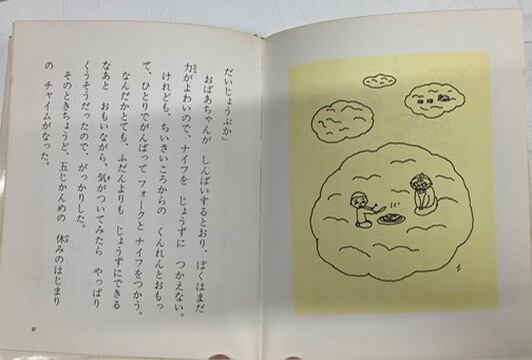 だいじょうぶか」
おばあちゃんが しんぱいするとおり、ぼくはまだ
力がよわいので、ナイフを じょうずに つかえない。
けれども、ちいさいころからの くんれんとおもっ
て、ひとりでがんばって フォークと ナイフをつかう。
なんだかとても、ふだんよりも じょうずにできる
なあと おもいながら、気がついてみたら やっぱり
くうそうだったので、がっかりした。
そのときちょうど、五じかんめの 休みのはじまり
の チャイムがなった。